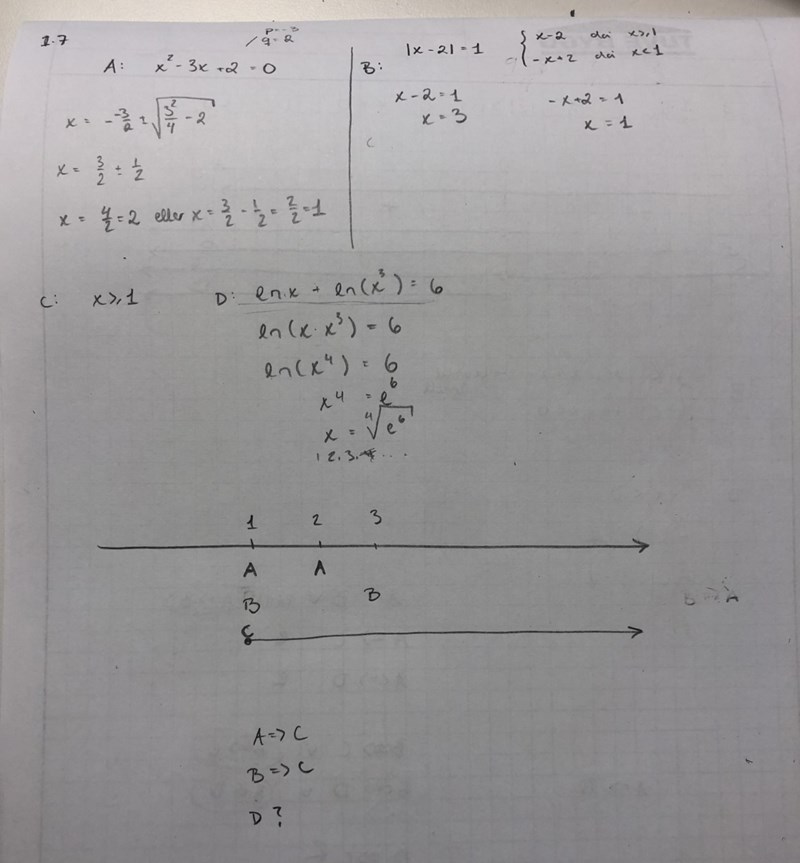 1.7
p=-3
q=2
A: x² - 3x + 2 = 0
x = - -3/2 ± √(3²/4 - 2)
x = 3/2 ± 1/2
x = 4/2 = 2 eller x = 3/2 - 1/2 = 2/2 = 1
B: |x - 2| = 1 { x - 2 då x ≥ 1
-x + 2 då x < 1
x - 2 = 1 -x + 2 = 1
x = 3 x = 1
C: x ≥ 1
D: ln x + ln(x³) = 6
ln(x · x³) = 6
ln(x⁴) = 6
x⁴ = e⁶
x = ⁴√e⁶
1 2 3
A A
B B
C
B => A
A => C
B => C
D ?